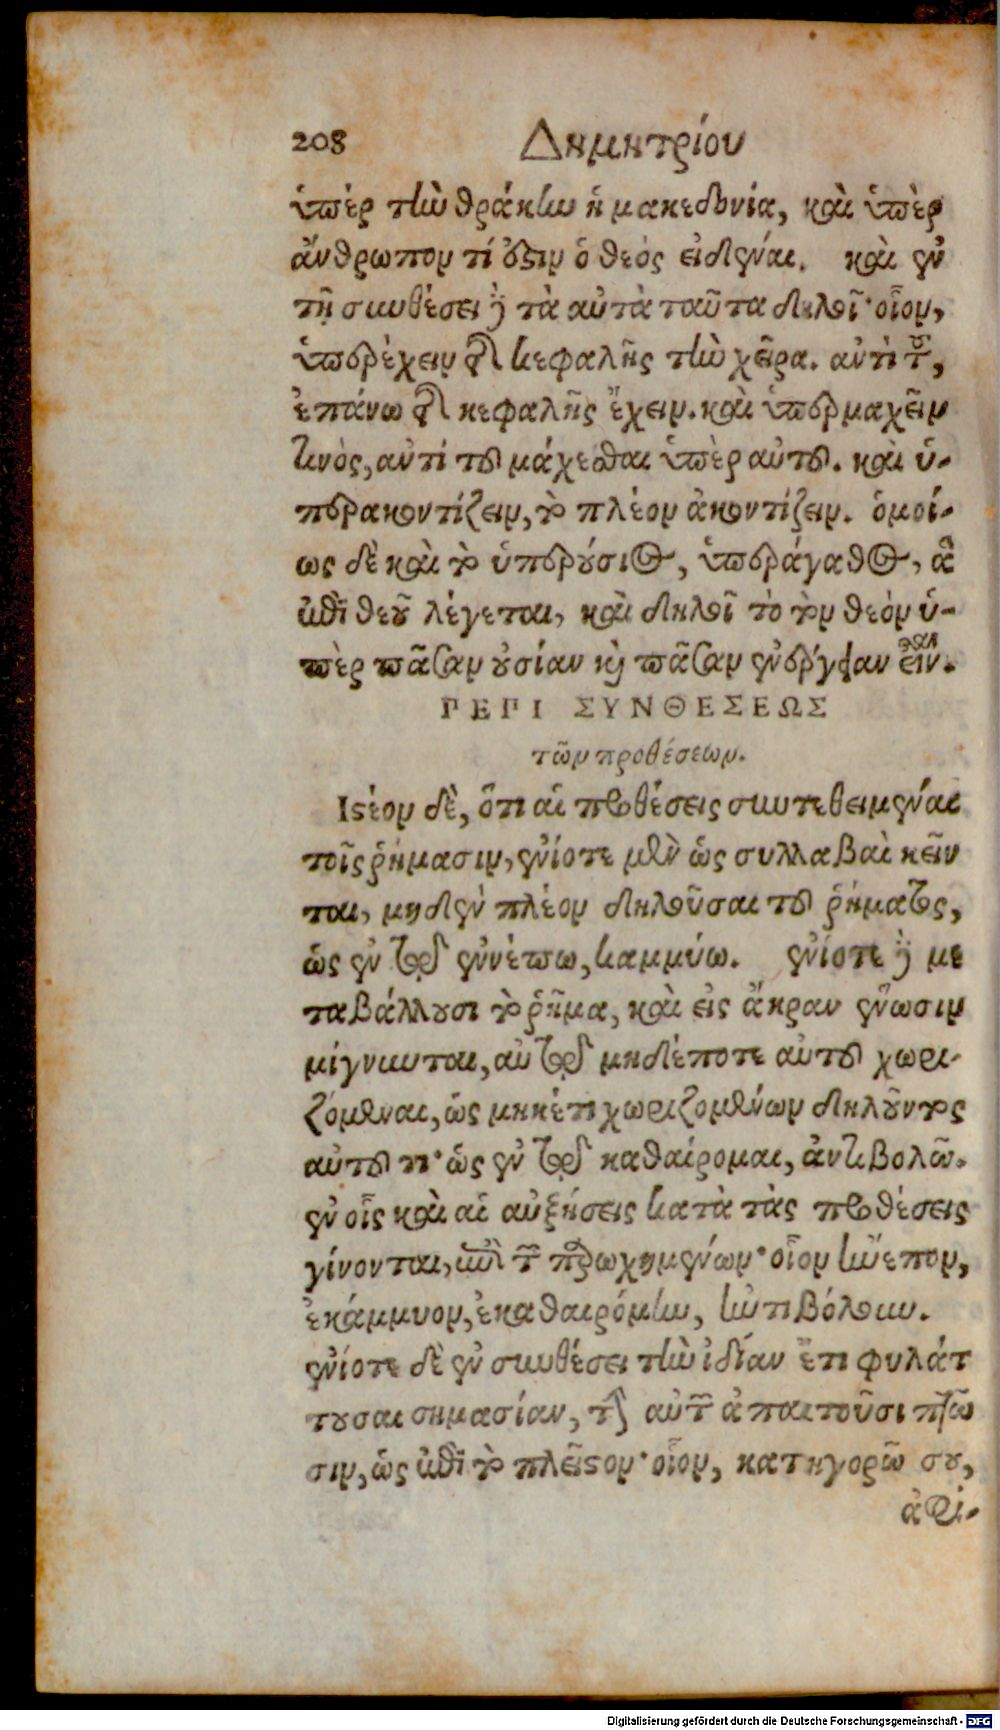 208 Δημητρίου
ὑπὲρ τὴν θράκην ἡ μακεδονία, καὶ ὑπὲρ
ἄνθρωπον τί ὅζιν ὁ θεὸς εἰδέναι. καὶ ἐν
τῇ συνθέσει δὲ τὰ αὐτὰ ταῦτα δηλοῖ· οἷον,
ὑπερέχειν τῆς κεφαλῆς τὴν χεῖρα. ἀντὶ τοῦ,
ἐπάνω τῆς κεφαλῆς ἔχειν. καὶ ὑπερμαχεῖν
τινὸς, ἀντὶ τοῦ μάχεσθαι ὑπὲρ αὐτοῦ. καὶ ὑ-
περακοντίζειν, τὸ πλέον ἀκοντίζειν. ὁμοί-
ως δὲ καὶ τὸ ὑπερούσιος, ὑπεράγαθος, ἃ
ἐπὶ θεοῦ λέγεται, καὶ δηλοῖ τὸ τὸν θεὸν ὑ-
πὲρ πᾶσαν οὐσίαν καὶ πᾶσαν ἐνέργειαν εἶναι.
ΠΕΡΙ ΣΥΝΘΕΣΕΩΣ
τῶν προθέσεων.
Ιστέον δὲ, ὅτι αἱ προθέσεις συντεθειμέναι
τοῖς ῥήμασιν, ἐνίοτε μὲν ὡς συλλαβαὶ κεῖν
ται, μηδὲν πλέον δηλοῦσαι τοῦ ῥήματος,
ὡς ἐν τῷ ἐννέπω, καμμύω. ἐνίοτε δὲ με
ταβάλλουσι τὸ ῥῆμα, καὶ εἰς ἄκραν ἕνωσιν
μίγνυνται, ἂν τῷ μηδέποτε αὐτοῦ χωρι-
ζόμεναι, ὡς μηκέτι χωριζομένων δηλοῦντος
αὐτοῦ τι· ὡς ἐν τῷ καθαίρομαι, ἀντιβολῶ.
ἐν οἷς καὶ αἱ αὐξήσεις κατὰ τὰς προθέσεις
γίνονται, ἐπὶ τῶν παρῳχημένων· οἷον ἤνεπον,
ἐκάμμυον, ἐκαθαιρόμην, ἠντιβόλουν.
ἐνίοτε δὲ ἐν συνθέσει τὴν ἰδίαν ἔτι φυλάτ
τουσαι σημασίαν, τὴν αὐτῶν ἀπαιτοῦσι πτῶ
σιν, ὡς ἐπὶ τὸ πλεῖστον· οἷον, κατηγορῶ σου,
ἀφί-
Digitalisierung gefördert durch die Deutsche Forschungsgemeinschaft - DFG